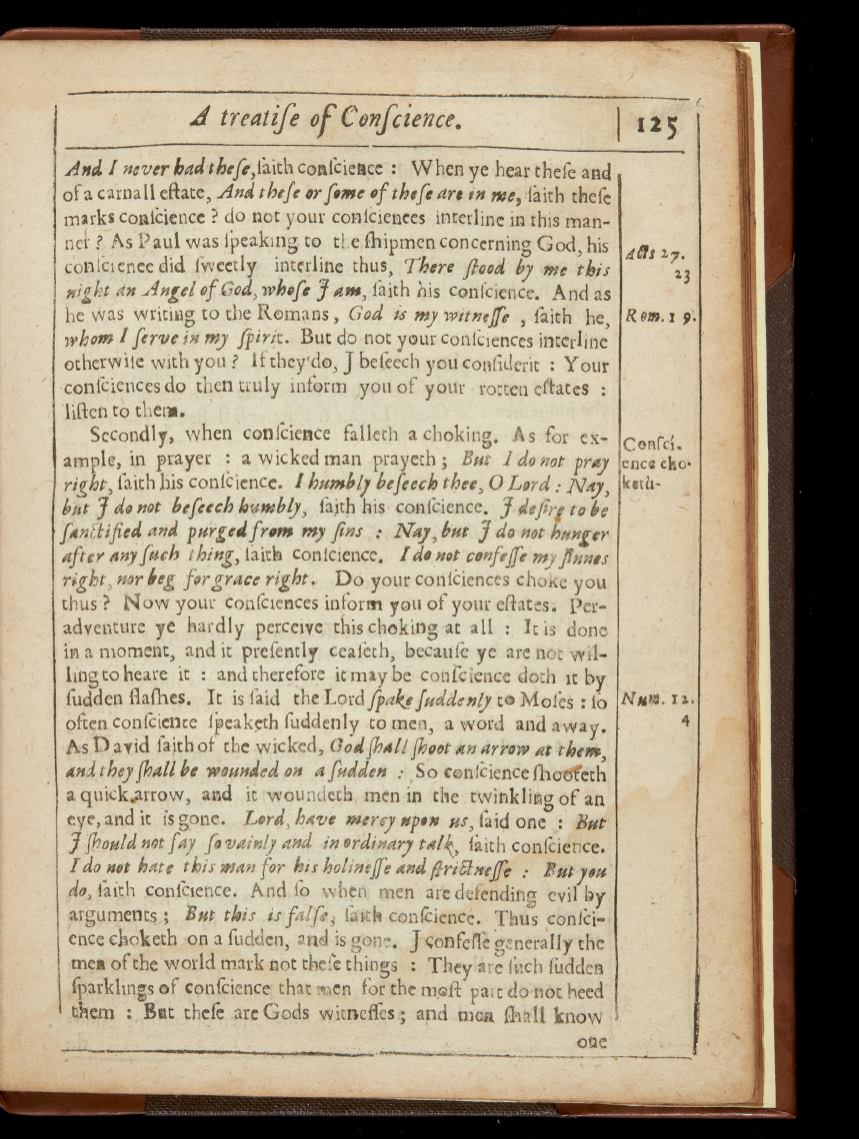 A treatiſe of Conſcience.
125
And I never had theſe, ſaith conſcience : When ye hear theſe and
of a carnall eſtate, And theſe or ſome of theſe are in me, ſaith theſe
marks conſcience ? do not your conſciences interline in this man-
ner ? As Paul was ſpeaking to the ſhipmen concerning God, his
conſcience did ſweetly interline thus, There ſtood by me this
night an Angel of God, whoſe J am, ſaith his conſcience. And as
he was writing to the Romans, God is my witneſſe , ſaith he,
whom I ſerve in my ſpirit. But do not your conſciences interline
otherwiſe with you ? If they do, J beſeech you conſider it : Your
conſciences do then truly inform you of your rotten eſtates :
liſten to them.
Secondly, when conſcience falleth a choking. As for ex-
ample, in prayer : a wicked man prayeth ; But I do not pray
right, ſaith his conſcience. I humbly beſeech thee, O Lord : Nay,
but J do not beſeech humbly, ſaith his conſcience. J deſire to be
ſanctified and purged from my ſins : Nay, but J do not hunger
after any ſuch thing, ſaith conſcience. I do not confeſſe my ſinnes
right, nor beg for grace right. Do your conſciences choke you
thus ? Now your conſciences inform you of your eſtates. Per-
adventure ye hardly perceive this choking at all : It is done
in a moment, and it preſently ceaſeth, becauſe ye are not wil-
ling to heare it : and therefore it may be conſcience doth it by
ſudden flaſhes. It is ſaid the Lord ſpake ſuddenly to Moſes : ſo
often conſcience ſpeaketh ſuddenly to men, a word and away.
As David ſaith of the wicked, God ſhall ſhoot an arrow at them,
and they ſhall be wounded on a ſudden : So conſcience ſhooteth
a quick arrow, and it woundeth men in the twinkling of an
eye, and it is gone. Lord, have mercy upon us, ſaid one : But
J ſhould not ſay ſo vainly and in ordinary talk, ſaith conſcience.
I do not hate this man for his holineſſe and ſtrictneſſe : But you
do, ſaith conſcience. And ſo when men are defending evil by
arguments ; But this is falſe, ſaith conſcience. Thus conſci-
ence choketh on a ſudden, and is gone. J confeſſe generally the
men of the world mark not theſe things : They are ſuch ſudden
ſparklings of conſcience that men for the moſt part do not heed
them : But theſe are Gods witneſſes ; and men ſhall know
one
Acts 27.
23
Rom. 1 9.
Conſci-
ence cho-
keth-
Num. 12.
4